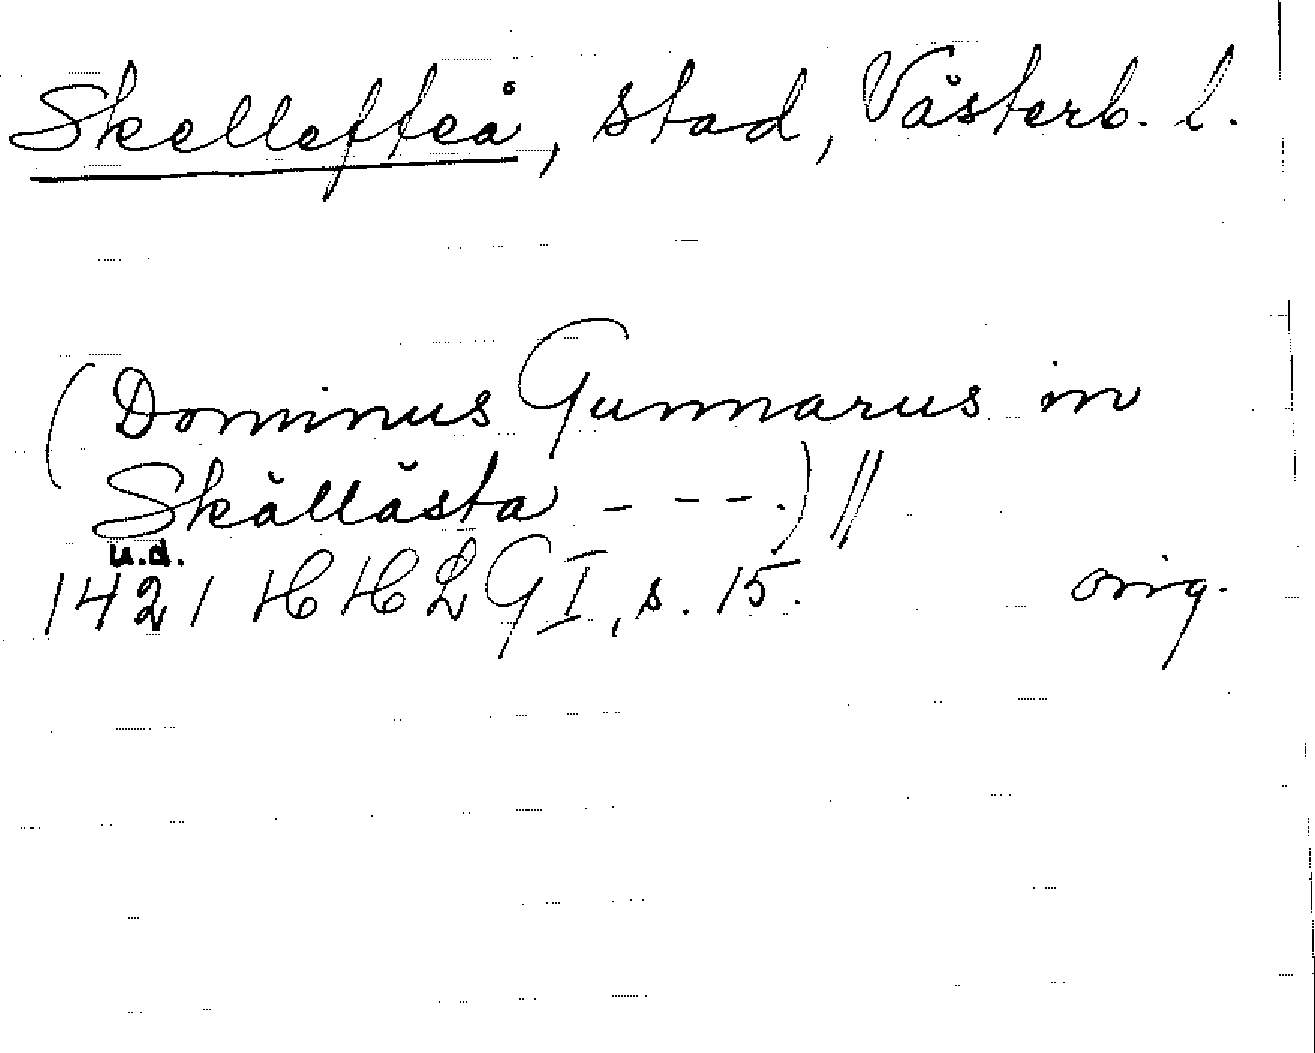 Skellefteå, stad, Västerb. l.
(Dominus Gunnarus in
Skällästa - - - .) //
u.d.
1421 HHLGI, s. 15. orig.